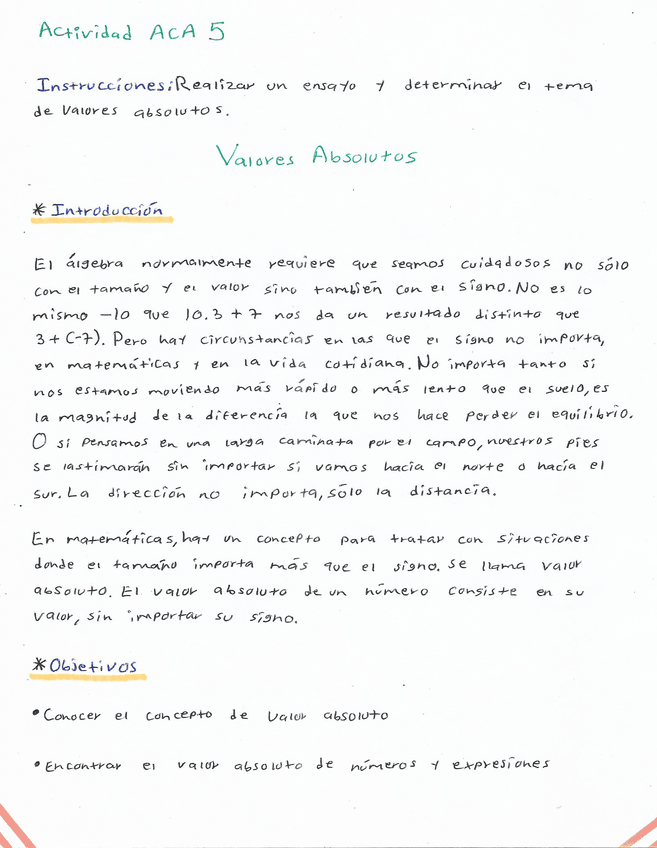 Actividad ACA 5
Instrucciones: Realizar un ensayo y determinar el tema
de Valores absolutos.
Valores Absolutos
* Introducción
El álgebra normalmente requiere que seamos cuidadosos no sólo
con el tamaño y el valor sino también con el signo. No es lo
mismo -10 que 10. 3 + 7 nos da un resultado distinto que
3 + (-7). Pero hay circunstancias en las que el signo no importa,
en matemáticas y en la vida cotidiana. No importa tanto si
nos estamos moviendo más rápido o más lento que el suelo, es
la magnitud de la diferencia la que nos hace perder el equilibrio.
O si pensamos en una larga caminata por el campo, nuestros pies
se lastimarán sin importar si vamos hacia el norte o hacía el
sur. La dirección no importa, sólo la distancia.
En matemáticas, hay un concepto para tratar con situaciones
donde el tamaño importa más que el signo. Se llama valor
absoluto. El valor absoluto de un número consiste en su
valor, sin importar su signo.
* Objetivos
• Conocer el concepto de Valor absoluto
• Encontrar el valor absoluto de números y expresiones